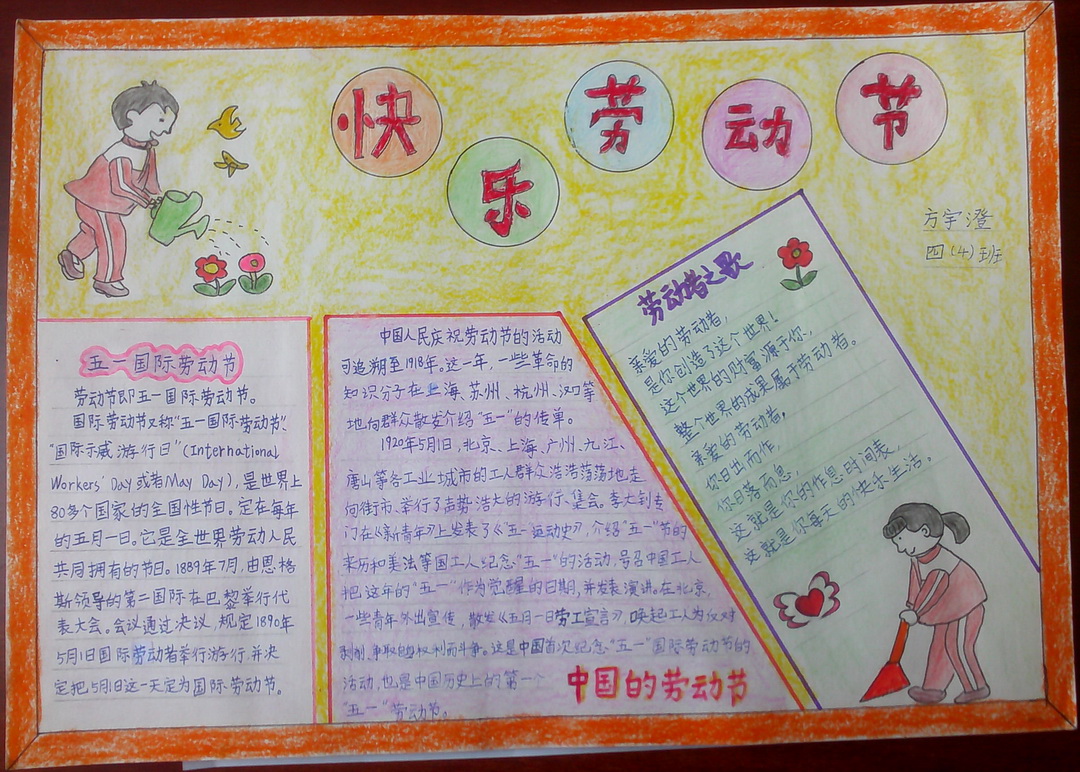 快乐劳动节
方宇澄
四(4)班
五一国际劳动节
劳动节即五一国际劳动节。
国际劳动节又称“五一国际劳动节”、
“国际示威游行日”(International
Workers' Day或者May Day),是世界上
80多个国家的全国性节日。定在每年
的五月一日。它是全世界劳动人民
共同拥有的节日。1889年7月,由恩格
斯领导的第二国际在巴黎举行代
表大会。会议通过决议,规定1890年
5月1日国际劳动者举行游行,并决
定把5月1日这一天定为国际劳动节。
中国人民庆祝劳动节的活动
可追溯至1918年。这一年,一些革命的
知识分子在上海、苏州、杭州、汉口等
地向群众散发介绍“五一”的传单。
1920年5月1日,北京、上海、广州、九江、
唐山等各工业城市的工人群众浩浩荡荡地走
向街市、举行了声势浩大的游行、集会。李大钊专
门在《新青年》上发表了《五一运动史》,介绍“五一”节的
来历和美法等国工人纪念“五一”的活动,号召中国工人
把这年的“五一”作为觉醒的日期,并发表演讲。在北京,
一些青年外出宣传、散发《五月一日劳工宣言》,唤起工人为反对
剥削、争取的权利而斗争。这是中国首次纪念“五一”国际劳动节的
活动,也是中国历史上的第一个
“五一”劳动节。
中国的劳动节
劳动者之歌
亲爱的劳动者,
是你创造了这个世界!
这个世界的财富源于你,
整个世界的成果属于劳动者。
亲爱的劳动者,
你日出而作,
你日落而息,
这就是你的作息时间表,
这就是你每天的快乐生活。